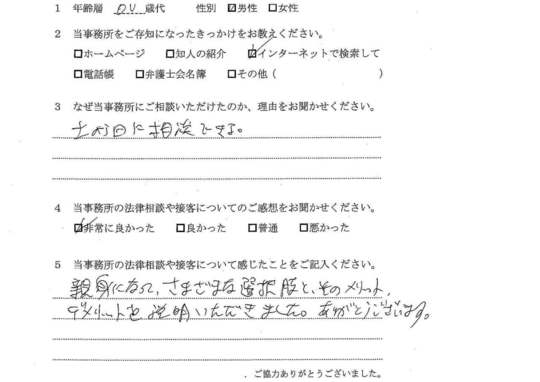 1 年齢層 歳代 性別 ☑男性 □女性
2 当事務所をご存知になったきっかけをお教えください。
□ホームページ □知人の紹介 ☑インターネットで検索して
□電話帳 □弁護士会名簿 □その他（ ）
3 なぜ当事務所にご相談いただけたのか、理由をお聞かせください。
土日に相談できる。
4 当事務所の法律相談や接客についてのご感想をお聞かせください。
☑非常に良かった □良かった □普通 □悪かった
5 当事務所の法律相談や接客について感じたことをご記入ください。
親身になって、さまざまな選択肢と、そのメリット、
デメリットを説明いただきました。ありがとうございます。
．ご協力ありがとうございました。